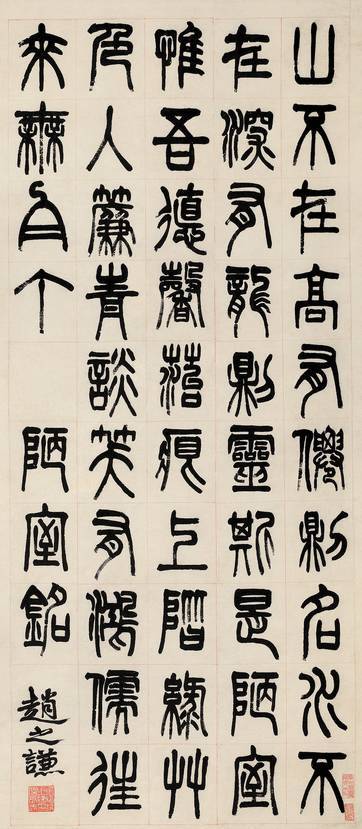 山不在高有僊則名水不
在深有龍則靈斯是陋室
惟吾德馨菭痕上階綠艸
色人簾青談笑有鴻儒往
來無白丁
陋室銘
趙之謙